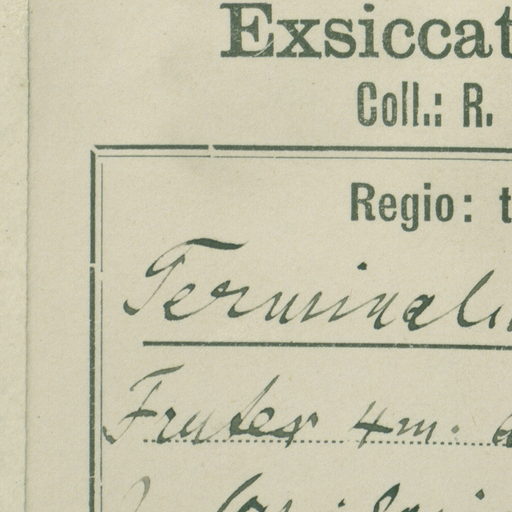 Exsiccat
Coll.: R.
Regio: t
Terminali
Frutex 4m.